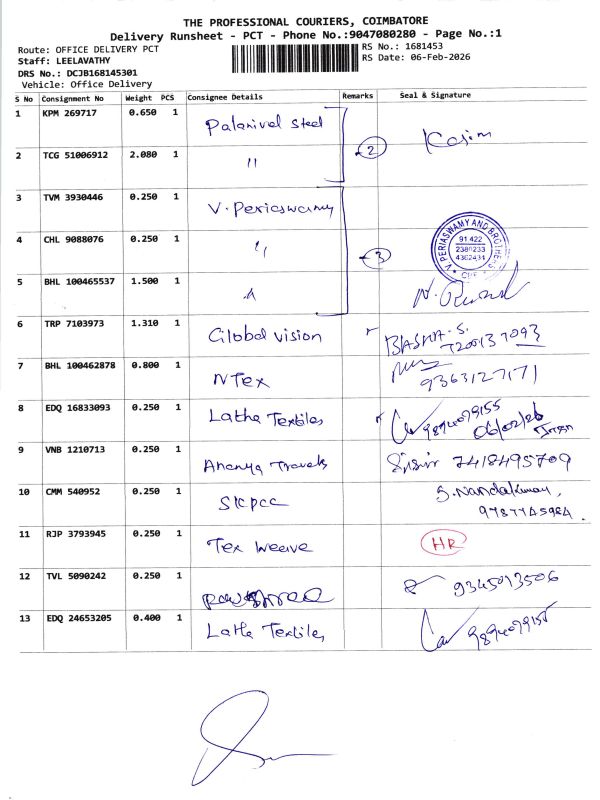 THE PROFESSIONAL COURIERS, COIMBATORE
Delivery Runsheet - PCT - Phone No.:9047080280 - Page No.:1
Route: OFFICE DELIVERY PCT
RS No.: 1681453
Staff: LEELAVATHY
RS Date: 06-Feb-2026
DRS No.: DCJB168145301
Vehicle: Office Delivery
S No Consignment No Weight PCS Consignee Details Remarks Seal & Signature
1 KPM 269717 0.650 1 Palanivel Steel
2 Kasim
2 TCG 51006912 2.080 1 "
3 TVM 3930446 0.250 1 V. Periaswamy
V. PERIASWAMY AND BROTHERS
91 422
2380233
4362431
CBE
4 CHL 9088076 0.250 1 "
3
5 BHL 100465537 1.500 1 "
6 TRP 7103973 1.310 1 Global vision BASHA. S.
7200137093
7 BHL 100462878 0.800 1 NTex 9363127171
8 EDQ 16833093 0.250 1 Latha Textiles 9894079155
06/02/26
9 VNB 1210713 0.250 1 Ananya Travels 7418495709
10 CMM 540952 0.250 1 S. Nandakumar,
9787745984.
11 RJP 3793945 0.250 1 Tex Weave HR
12 TVL 5090242 0.250 1 9345013506
13 EDQ 24653205 0.400 1 Latha Textiles 9894079155